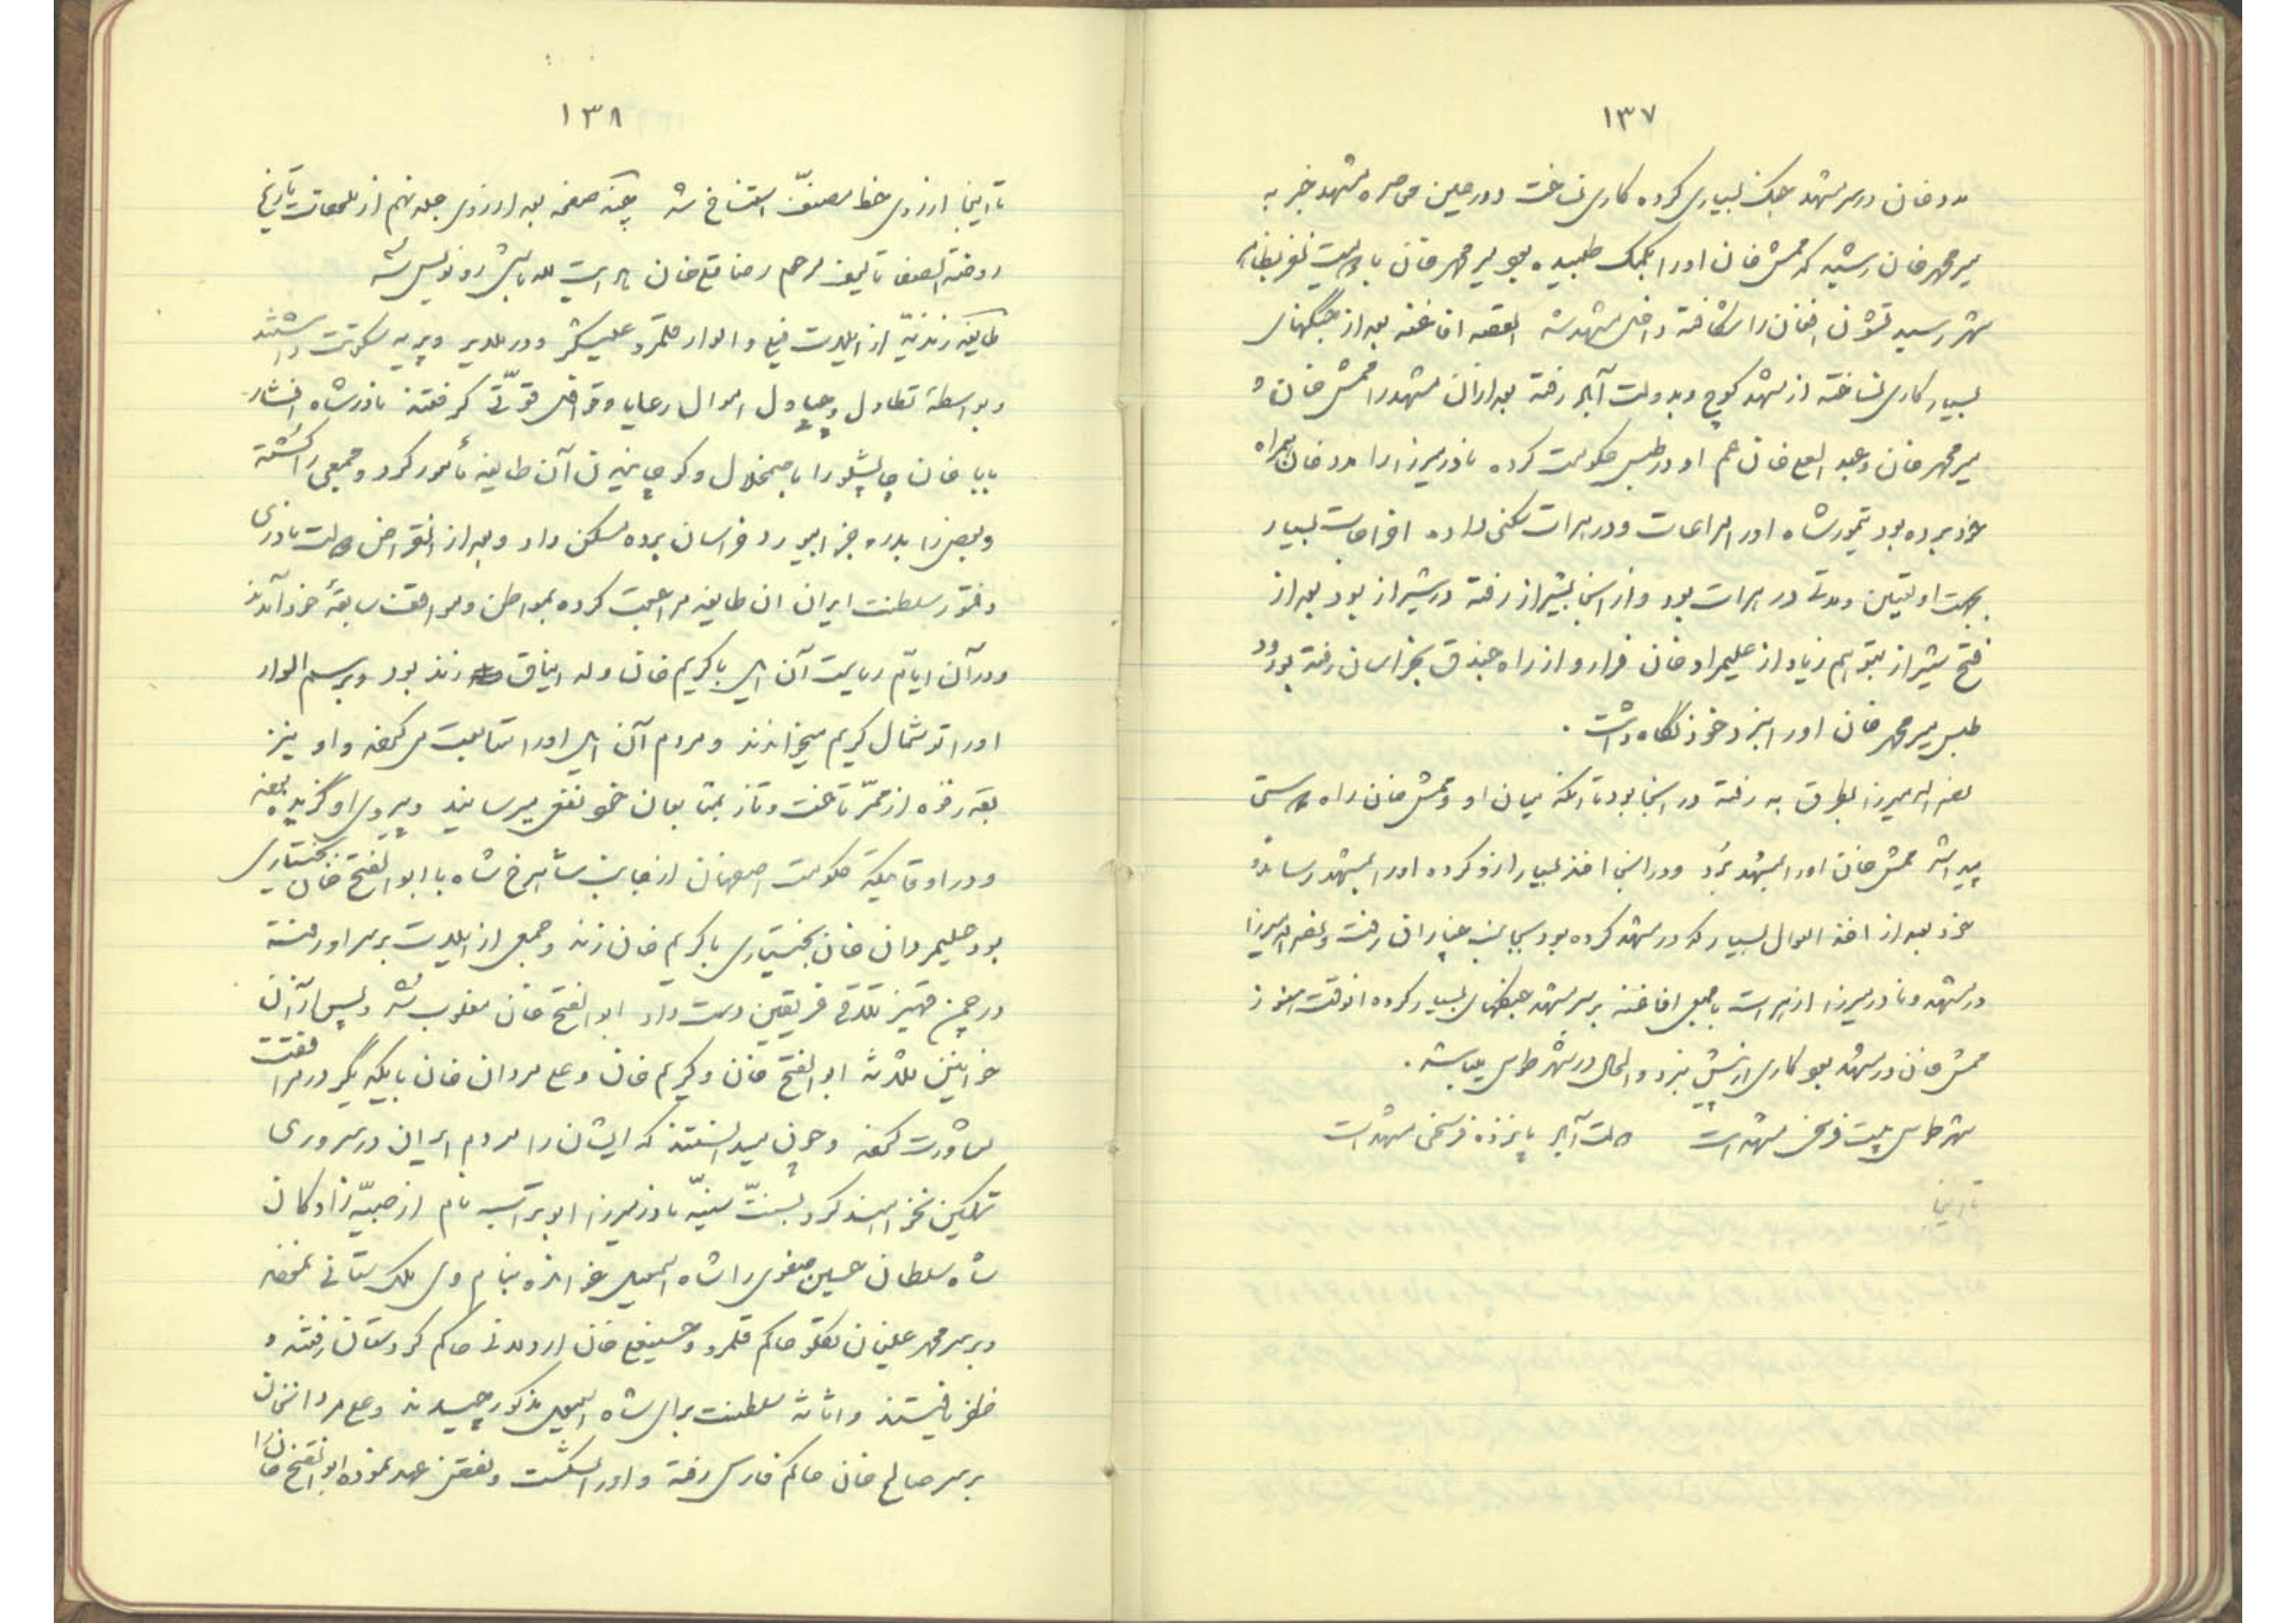 ۱۳۷
مدد خان در سر مشهد جنگ بسیاری کرده کاری نساخت و در حین محاصره مشهد خبر به
میر محمد خان رسید که ممش خان او را بکمک طلبیده بود میر محمد خان با دویست نفر بظاهر
شهر رسید قشون افغان را شکافته داخل مشهد شد القصه افاغنه بعد از جنگهای
بسیار کاری نساخته از مشهد کوچ و بدولت آباد رفته بعد از آن مشهد را ممش خان و
میر محمد خان و عبد العلی خان عم او در طبس حکومت کرده نادر میرزا را مدد خان همراه
خود برده بود تیمور شاه او را مراعات و در هرات سکنی داده اخراجات بسیار
بجهت او تعیین و مدتی در هرات بود و از آنجا بشیراز رفته در شیراز بود بعد از
فتح شیراز بتوهم زیاد از علیمراد خان فرار و از راه جندق بخراسان رفته بورود
طبس میر محمد خان او را بنزد خود نگاه داشت .
نصر الله میرزا بطرق به رفته در آنجا بود تا آنکه میان او و ممش خان راه دوستی
پیدا شد ممش خان او را بمشهد برد و در آنجا اخذ بسیار از او کرده او را بمشهد رساند و
خود بعد از اخذ اموال بسیار که در مشهد کرده بود بجانب چناران رفت و نصر الله میرزا
در مشهد و نادر میرزا از هرات با جمعی افاغنه بر سر مشهد جنگهای بسیار کرده آنوقت هنوز
ممش خان در مشهد بود کاری از پیش نبرد و الحال در شهر طوس میباشد .
شهر طوس بیست فرسخی مشهد است دولت آباد پانزده فرسخی مشهد است
تا اینجا
۱۳۸
تا اینجا از روی خط مصنف استنساخ شد چند صفحه بعد از روی جلد نهم از ملحقات تاریخ
روضة الصفا تألیف مرحوم رضا قلی خان هدایت لله باشی رونویس شد
طایفه زندیه از ایلات فیلی و الوار قلمرو علیشکر و در ملایر و پریه سکونت داشتند
و بواسطه تطاول و چپاول اموال رعایا و قوافل قوّتی گرفتند نادرشاه افشار
بابا خان چاپشلو را باضمحلال و کوچانیدن آن طایفه مأمور کرد و جمعی را کشته
و بعضی را بدره جز ابیورد خراسان برده مسکن داد و بعد از انقراض دولت نادری
و فتور سلطنت ایران آن طایفه مراجعت کرده بمواطن و مواقف سابقهٔ خود آمدند
و در آن ایام ریاست آن ایل با کریم خان ولد ایناق زند بود و برسم الوار
او را توشمال کریم میخواندند و مردم آن ایل او را متابعت میکردند و او نیز
بقدر قوّه از ممرّ تاخت و تاز بمتابعان خود نفع میرسانید و پیروی او گزیده بودند
و در اوقاتیکه حکومت اصفهان از جانب شاهرخ شاه با ابو الفتح خان بختیاری
بود علیمردان خان بختیاری با کریم خان زند و جمعی از ایلات بر سر او رفته
در چمن قهیز تلاقی فریقین دست داد ابو الفتح خان مغلوب شد و پس از آن
خوانین ثلاثه ابو الفتح خان و کریم خان و علی مردان خان با یکدیگر در مرافقت
مشاورت کردند و چون میدانستند که ایشان را مردم ایران در سروری
تمکین نخواهند کرد بسنّت سنیّه نادر میرزا ابو تراب نام از صبیّه زادگان
شاه سلطان حسین صفوی را شاه اسمعیل خوانده بنام وی ملک ستانی نمودند
و بر سر محمد علیخان تکلو حاکم قلمرو و حسنعلی خان اردلانی حاکم کردستان رفتند و
ظفر یافتند و اثاث سلطنت برای شاه اسمعیل مذکور چیدند و علی مردانخان
بر سر صالح خان حاکم فارس رفته و او را بشکست و نقض عهد نموده ابو الفتح خان را